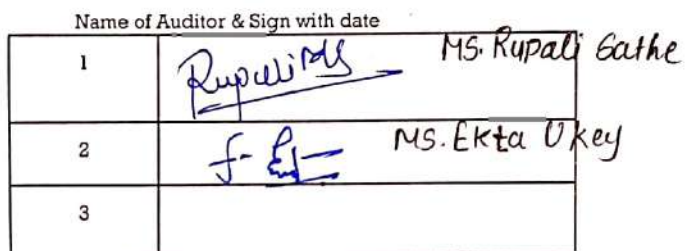 Name of Auditor & Sign with date
1 MS. Rupali Sathe
2 MS. Ekta Ukey
3